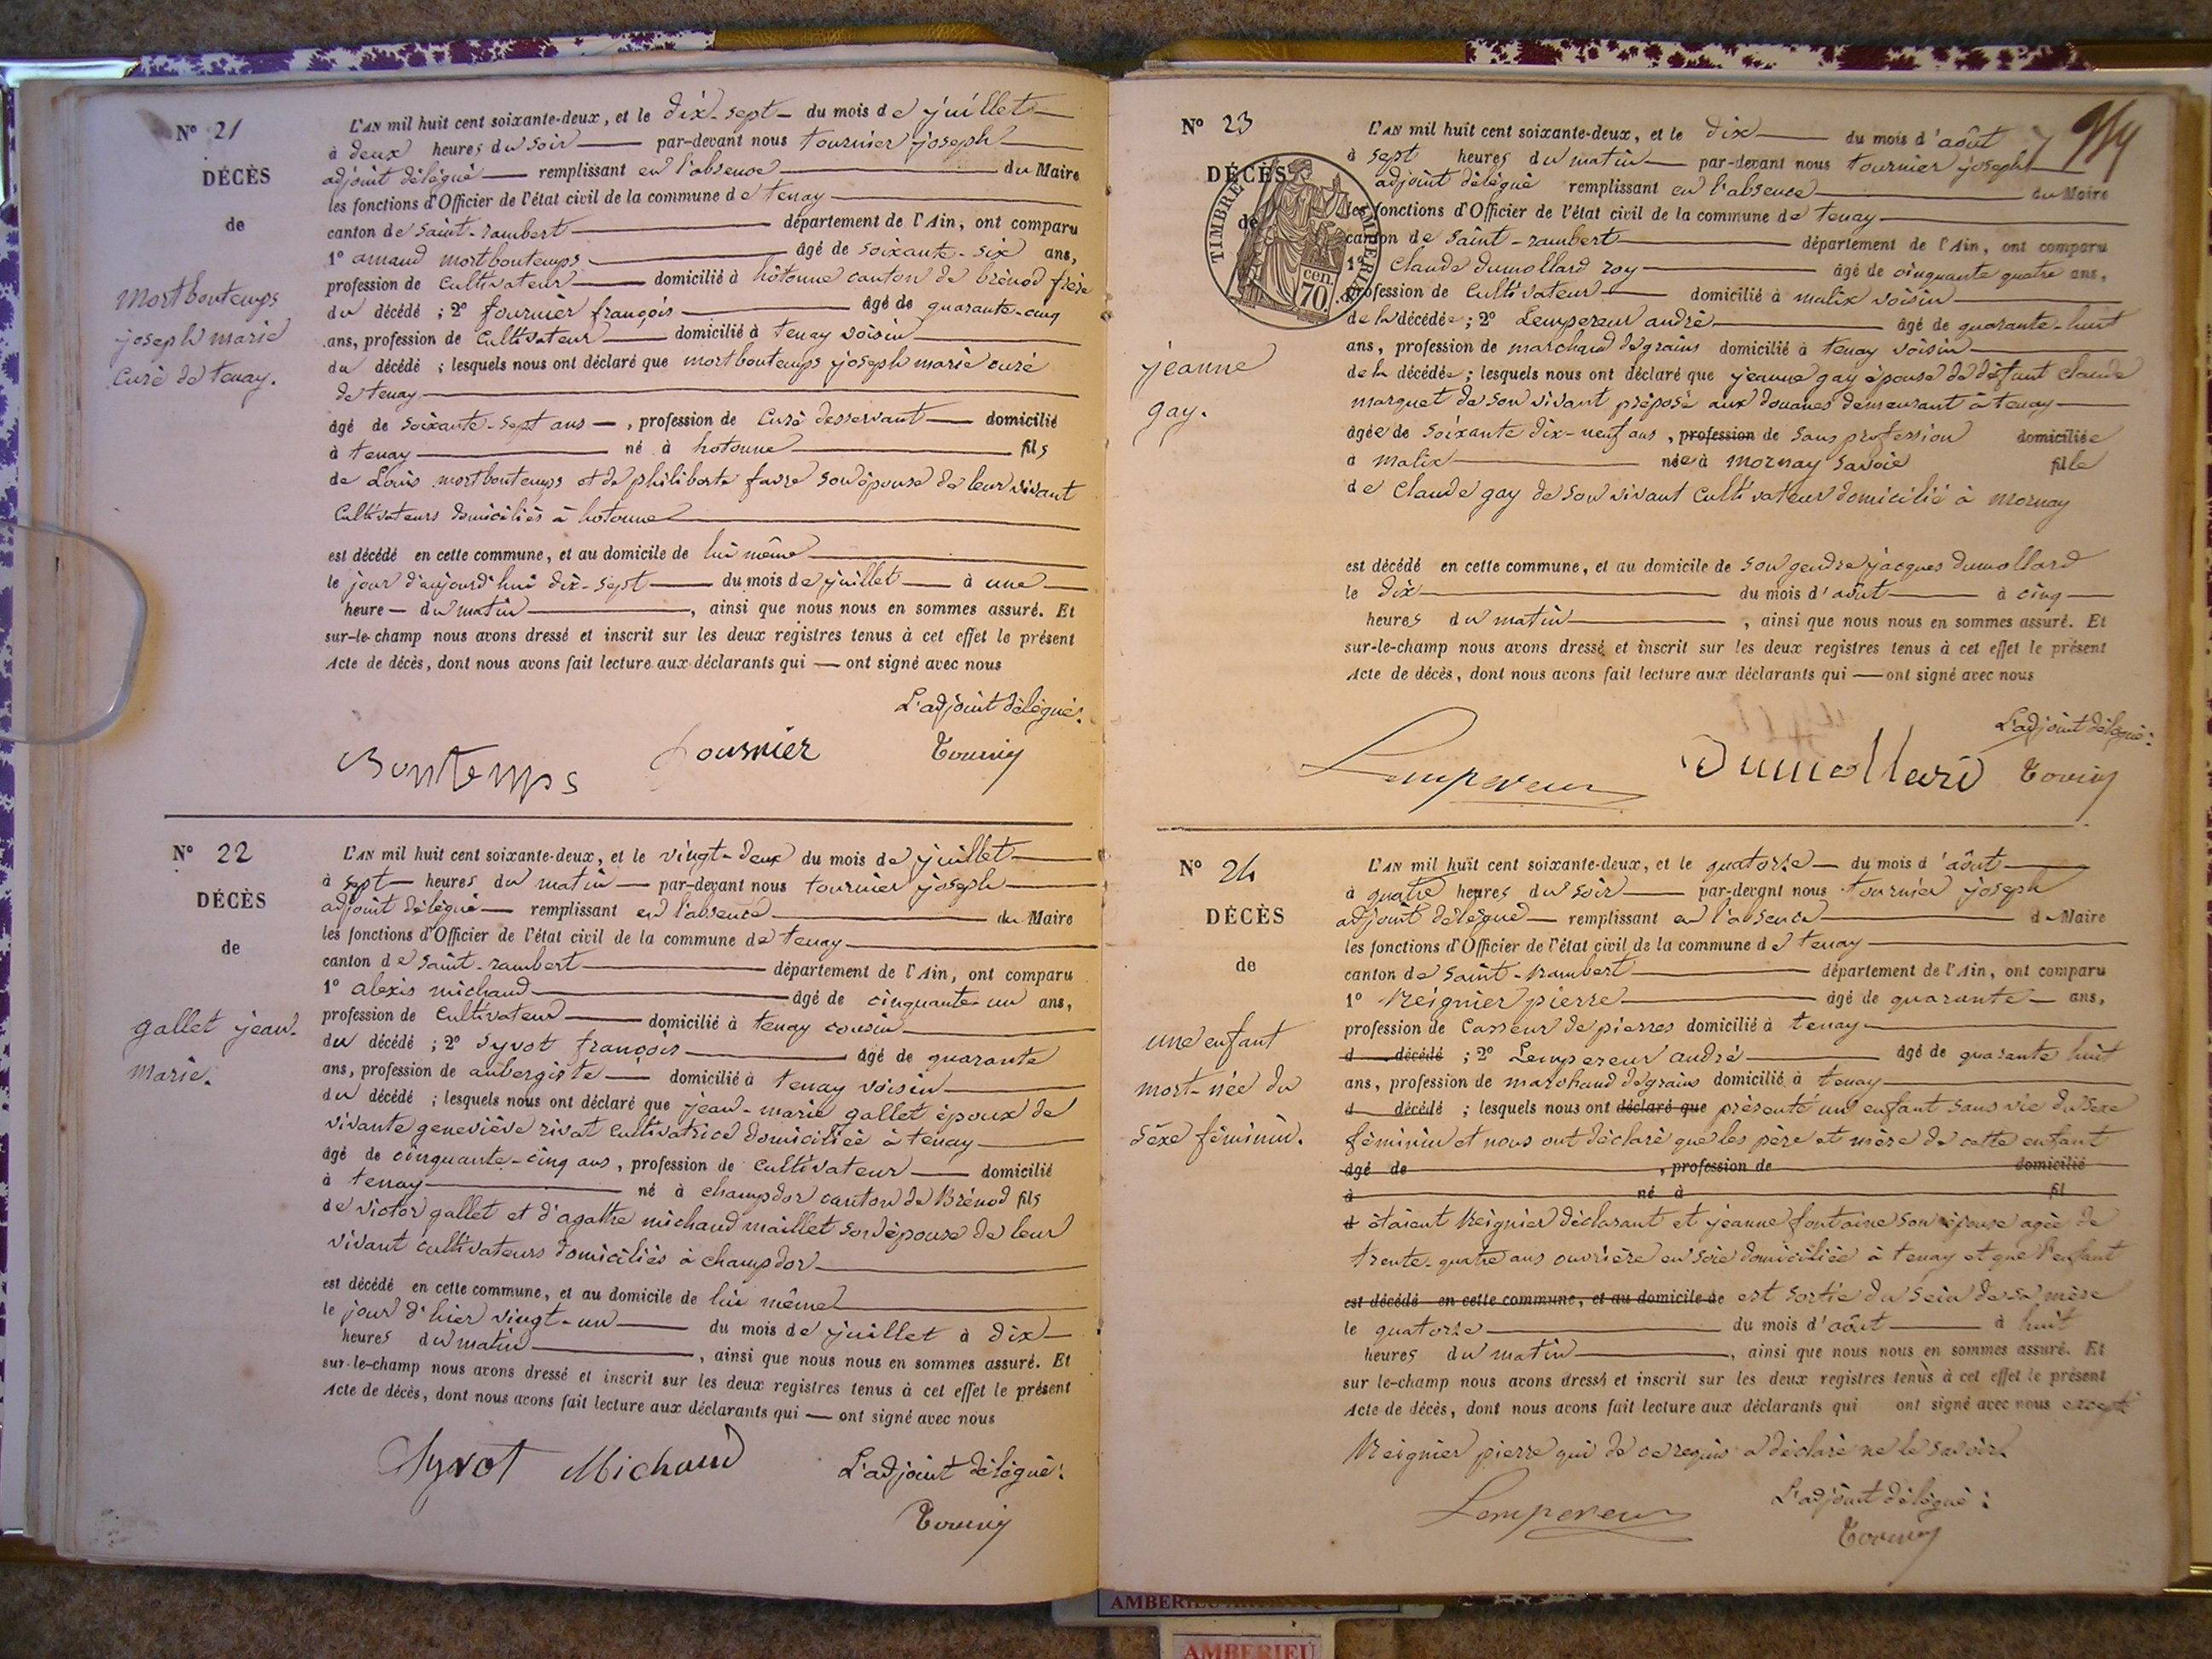 N° 21
DÉCÈS
de
mortboutemps
joseph marie
curé de tenay.
L'AN mil huit cent soixante-deux, et le dix-sept du mois de juillet
à deux heures du soir par-devant nous tournier joseph
adjoint délégué remplissant en l'absence du Maire
les fonctions d'Officier de l'état civil de la commune de tenay
canton de saint-rambert département de l'Ain, ont comparu
1° amand mortboutemps âgé de soixante-six ans,
profession de cultivateur domicilié à hotonne canton de brénod frère
du décédé ; 2° fournier françois âgé de quarante-cinq
ans, profession de cultivateur domicilié à tenay voisin
du décédé ; lesquels nous ont déclaré que mortboutemps joseph marie curé
de tenay
âgé de soixante-sept ans, profession de curé desservant domicilié
à tenay né à hotonne fils
de Louis mortboutemps et de philiberte favre son épouse de leur vivant
cultivateurs domiciliés à hotonne
est décédé en cette commune, et au domicile de lui même
le jour d'aujourd'hui dix-sept du mois de juillet à une
heure du matin, ainsi que nous nous en sommes assuré. Et
sur-le-champ nous avons dressé et inscrit sur les deux registres tenus à cet effet le présent
Acte de décès, dont nous avons fait lecture aux déclarants qui ont signé avec nous
L'adjoint délégué :
Bontemps fournier
N° 22
DÉCÈS
de
gallet jean-
marie.
L'AN mil huit cent soixante-deux, et le vingt-deux du mois de juillet
à sept heures du matin par-devant nous tournier joseph
adjoint délégué remplissant en l'absence du Maire
les fonctions d'Officier de l'état civil de la commune de tenay
canton de saint-rambert département de l'Ain, ont comparu
1° alexis michaud âgé de cinquante-un ans,
profession de cultivateur domicilié à tenay cousin
du décédé ; 2° Syvot françois âgé de quarante
ans, profession de aubergiste domicilié à tenay voisin
du décédé ; lesquels nous ont déclaré que jean-marie gallet époux de
vivante geneviève rivat cultivatrice domiciliée à tenay
âgé de cinquante-cinq ans, profession de cultivateur domicilié
à tenay né à champdor canton de Brénod fils
de victor gallet et d'agathe michaud maillet son épouse de leur
vivant cultivateurs domiciliés à champdor
est décédé en cette commune, et au domicile de lui même
le jour d'hier vingt-un du mois de juillet à dix
heures du matin, ainsi que nous nous en sommes assuré. Et
sur-le-champ nous avons dressé et inscrit sur les deux registres tenus à cet effet le présent
Acte de décès, dont nous avons fait lecture aux déclarants qui ont signé avec nous
Syvot Michaud L'adjoint délégué :
N° 23
DÉCÈS
de
TIMBRE IMPÉRIAL
70 cen.
jeanne
gay.
L'AN mil huit cent soixante-deux, et le dix du mois d'août
à sept heures du matin par-devant nous tournier joseph
adjoint délégué remplissant en l'absence du Maire
les fonctions d'Officier de l'état civil de la commune de tenay
canton de saint-rambert département de l'Ain, ont comparu
1° Claude dumollard roy âgé de cinquante quatre ans,
profession de cultivateur domicilié à malix voisin
de la décédée ; 2° Lempereur andré âgé de quarante-huit
ans, profession de marchand de grains domicilié à tenay voisin
de la décédée ; lesquels nous ont déclaré que jeanne gay épouse de défunt claude
marquet de son vivant préposé aux douanes demeurant à tenay
âgée de soixante dix-neuf ans, profession de sans profession domiciliée
à malix née à mornay savoie fille
de Claude gay de son vivant cultivateur domicilié à mornay
est décédé en cette commune, et au domicile de son gendre jacques dumollard
le dix du mois d'août à cinq
heures du matin, ainsi que nous nous en sommes assuré. Et
sur-le-champ nous avons dressé et inscrit sur les deux registres tenus à cet effet le présent
Acte de décès, dont nous avons fait lecture aux déclarants qui ont signé avec nous
L'adjoint délégué :
Lempereur Dumollard
N° 24
DÉCÈS
de
une enfant
mort-née du
sexe féminin.
L'AN mil huit cent soixante-deux, et le quatorze du mois d'août
à quatre heures du soir par-devant nous tournier joseph
adjoint délégué remplissant en l'absence du Maire
les fonctions d'Officier de l'état civil de la commune de tenay
canton de saint-rambert département de l'Ain, ont comparu
1° Reignier pierre âgé de quarante ans,
profession de casseur de pierres domicilié à tenay
d décédé ; 2° Lempereur andré âgé de quarante huit
ans, profession de marchand de grains domicilié à tenay
d décédé ; lesquels nous ont déclaré que présenté un enfant sans vie du sexe
féminin et nous ont déclaré que les père et mère de cette enfant
âgé de , profession de domicilié
à né à fil
d étaient Reignier déclarant et jeanne fontaine son épouse agée de
trente-quatre ans ouvrière en soie domiciliée à tenay et que l'enfant
est décédé en cette commune, et au domicile de est sortie du sein de sa mère
le quatorze du mois d'août à huit
heures du matin, ainsi que nous nous en sommes assuré. Et
sur le-champ nous avons dressé et inscrit sur les deux registres tenus à cet effet le présent
Acte de décès, dont nous avons fait lecture aux déclarants qui ont signé avec nous excepté
Reignier pierre qui de ce requis a déclaré ne le savoir.
Lempereur L'adjoint délégué :
AMBERIEU
AMBERIEU